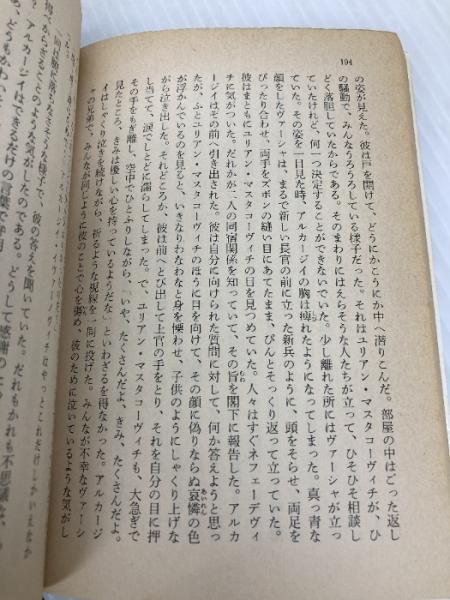 194
の姿が見えた。彼は戸を開けて、どうにかこうにか中へ潜りこんだ。部屋の中はごった返し
の騒動で、みんなうろうろしている様子だった。それはユリアン・マスタコーヴィチが、ひ
どく落胆していたからである。そのまわりにはえらそうな人たちが立って、ひそひそ相談し
ていたけれど、何一つ決定することができないでいた。少し離れた所にはヴァーシャが立っ
ていた。その姿を一目見た時、アルカージイの胸は痺れたようになってしまった。真っ青な
顔をしたヴァーシャは、まるで新しい長官の前に立った新兵のように、頭をそらせ、両足を
ぴったり合わせ、両手をズボンの縫い目にあてたまま、ぴんとそっくり返って立っていた。
彼はまともにユリアン・マスタコーヴィチの目を見つめていた。人々はすぐネフェーデヴィ
チに気がついた。だれかが、二人の同宿関係を知っていて、その旨を閣下に報告した。アルカ
ージイはその前へ引き出された。彼は自分に向けられた質問に対して、何か答えようと思っ
たが、ふとユリアン・マスタコーヴィチのほうに目を向けて、その顔に偽りならぬ哀憐の色
が浮かんでいるのを見ると、いきなりわなわなと身を慄わせ、子供のようにしゃくり上げな
がら泣き出した。それどころか、彼は前へとび出して上官の手をとり、それを自分の目に押
し当てて、涙でしとどに濡らしてしまった。で、ユリアン・マスタコーヴィチも、大急ぎで
その手をもぎ離し、空中でひとふりしながら、「いや、たくさんだよ、きみ、たくさんだよ。
見たところ、きみは優しい心を持っているようだな」といわざるを得なかった。アルカージ
イはしゃくり泣きを続けながら、祈るような視線を一同に投げた。みんなが不幸なヴァーシ
ャの兄弟で、みんなが同じように彼のことで心を痛め、彼のために泣いているような気がし